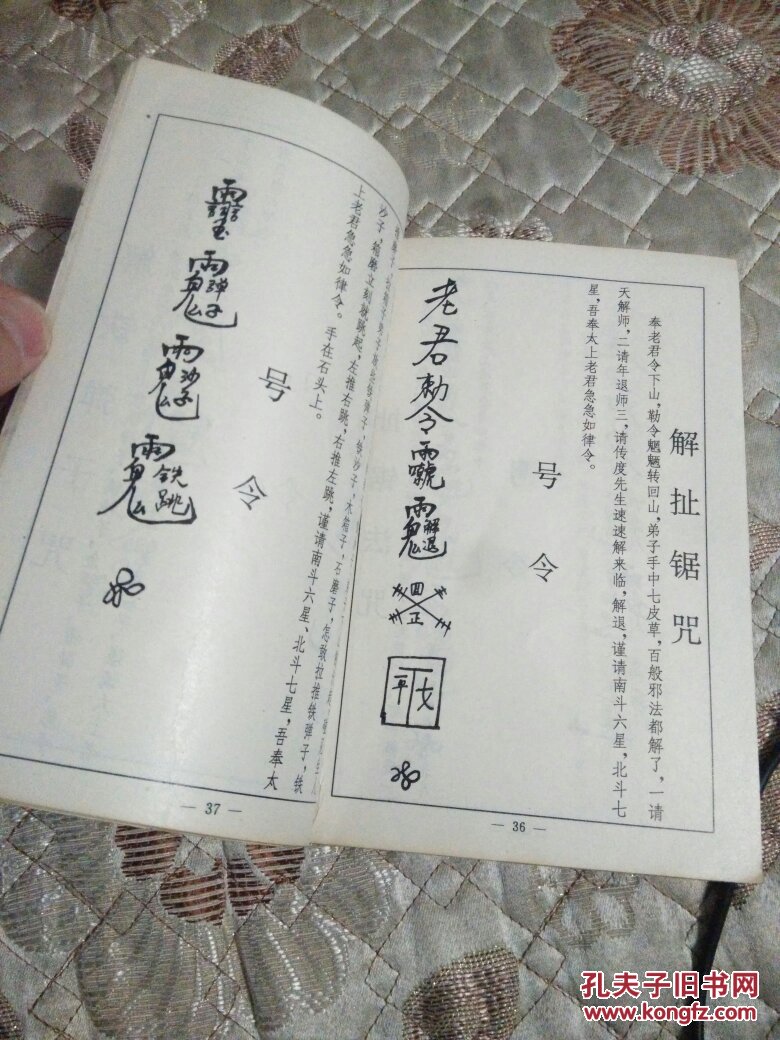 解扯锯咒
奉老君令下山，勒令魍魉转回山，弟子手中七皮草，百般邪法都解了，一请
天解师，二请年退师三，请传度先生速速解来临，解退，谨请南斗六星，北斗七
星，吾奉太上老君急急如律令。
号令
老君勅令
解退
四正
— 36 —
沙子，箱磨立刻就跳起，左推右跳，右推左跳，谨请南斗六星、北斗七星，吾奉太
上老君急急如律令。手在石头上。
号令
弹子
沙子
铁跳
— 37 —
孔夫子旧书网
www.kongfz.com